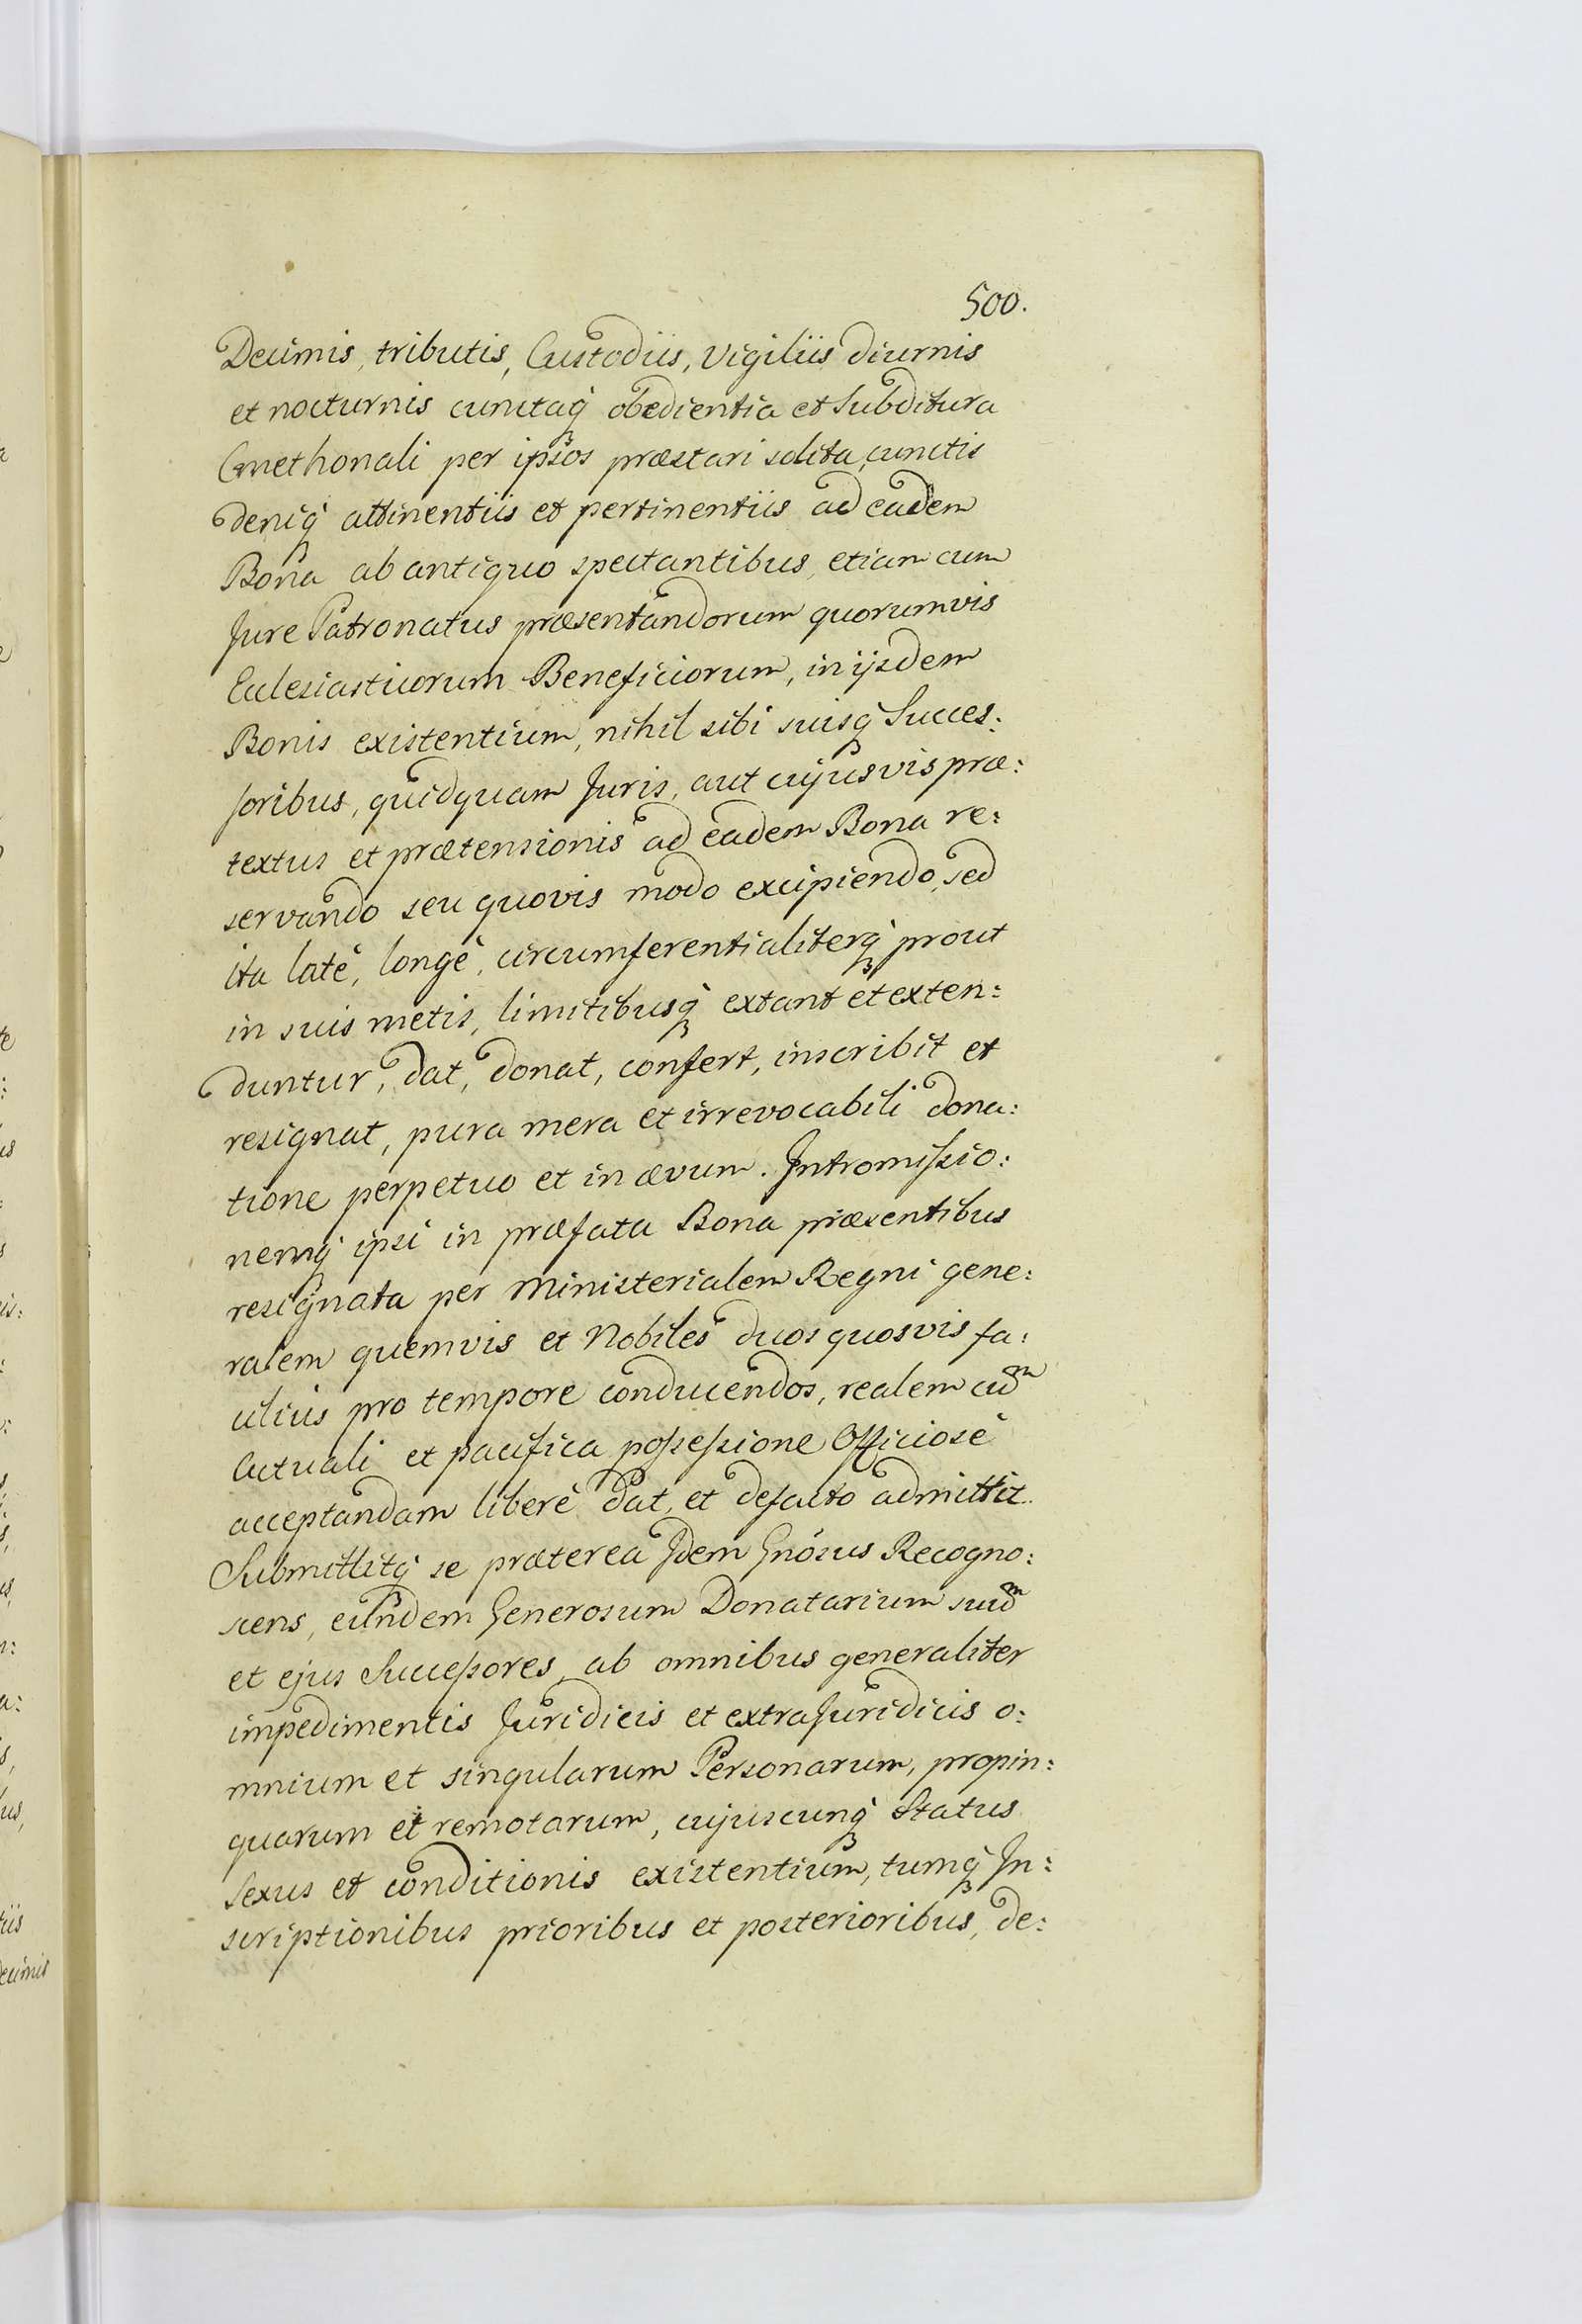 500.
Decimis, tributis, Custodiis, vigiliis diurnis
et nocturnis cunctaq́ obedientia et Subditura
Cmethonali per ipsos præstari solita, cunctis
deniq́ attinentiis et pertinentiis ad eadem
Bona ab antiquo spectantibus, etiam cum
Jure Patronatus præsentandorum quorumvis
Ecclesiasticorum Beneficiorum, in ijsdem
Bonis existentium, nihil sibi suisq́ Succes:
soribus, quidquam Juris, aut cujusvis præ:
textus et prætensionis ad eadem Bona re:
servando seu quovis modo excipiendo, sed
ita latè, longè, circumferentialiterq́ prout
in suis metis, limitibusq́ extant et exten:
duntur, dat, donat, confert, inscribit et
resignat, pura mera et irrevocabili dona:
tione perpetuo et in ævum. Intromissio:
nemq́ ipsi in præfata Bona præsentibus
resignata per Ministerialem Regni gene:
ralem quemvis et Nobiles duos quosvis fa:
cilius pro tempore conducendos, realem cũ
Actuali et pacifica possessione Officiosè
acceptandam liberè dat, et defacto admittit.
Submittitq́ se præterea Idem Gnósus Recogno:
scens, eundem Generosum Donatarium suũ
et ejus Successores, ab omnibus generaliter
impedimentis Juridicis et extraJuridicis o:
mnium et singularum Personarum, propin:
quarum et remotarum, cujuscunq́ Status
Sexus et conditionis existentium, tumq́ In:
scriptionibus prioribus et posterioribus, de: